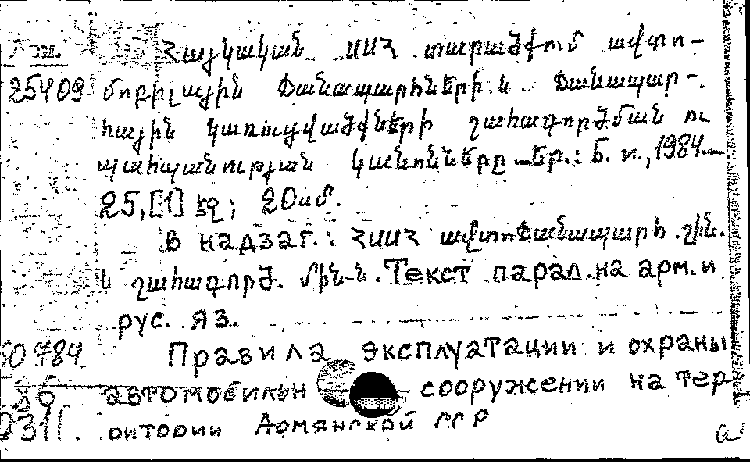 Հայկական ՍՍՀ տարածքում ավտո-
25409 մոբիլային ճանապարհների և ճանապար-
հային կառուցվածքների շահագործման ու
պահպանության կանոնները.—Եր.: Б. и., 1984.—
25, [1] էջ; 20սմ.
В надзаг.: ՀՍՍՀ ավտոճանապարհ. շին.
և շահագործ. մին-ն. Текст парал. на арм. и
рус. яз.
50784 Правила эксплуатации и охраны
автомобильн сооружении на тер-
ритории Армянской ССР